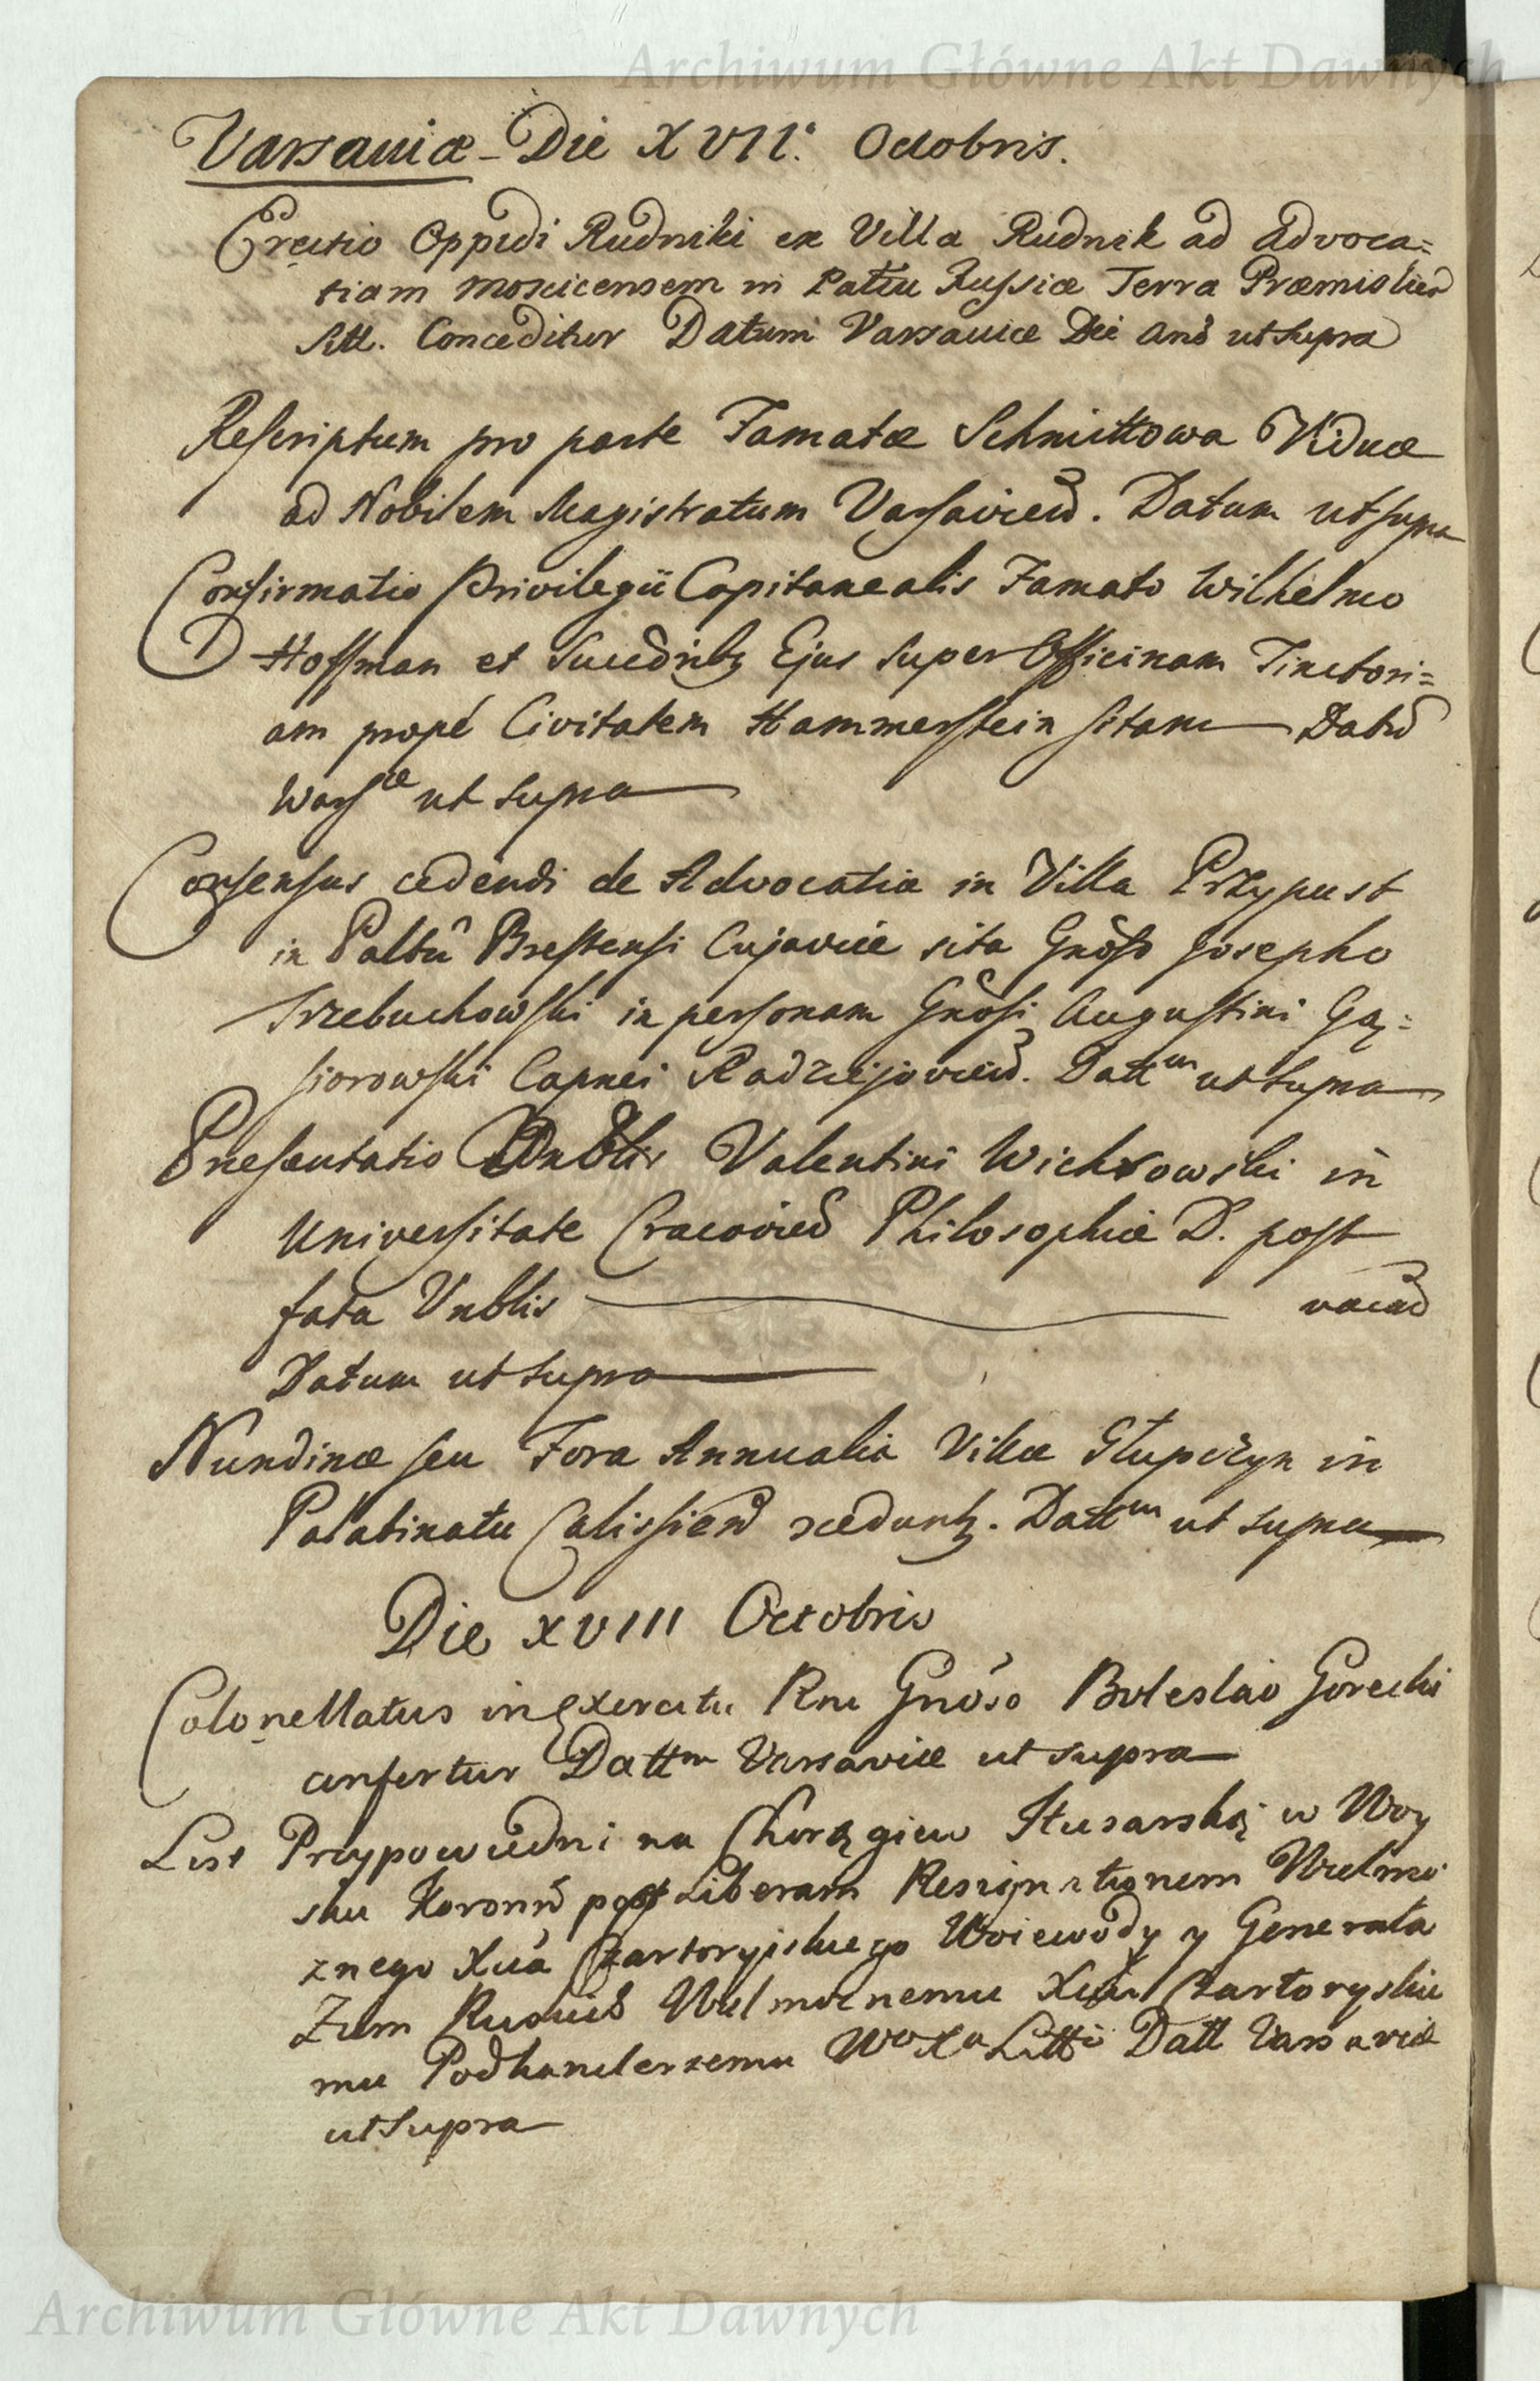 Archiwum Główne Akt Dawnych
Varsaviæ - Die XVII. Octobris.
Erectio Oppidi Rudniki ex Villa Rudnik ad Advoca=
tiam Moscicensem in Pattu Russiæ Terra Præmislien
sitt. Conceditur Datum Varsaviæ Die Anō ut supra
Rescriptum pro parte Famatæ Schmittowa Viduæ
ad Nobilem Magistratum Varsavien. Datum ut supra
Confirmatio Privilegii Capitanealis Famato Wilhelmo
Hoffman et Succedribꝫ Ejus super Officinam Tinctori=
am propé Civitatem Hammerstein sitam Datū
Warsæ ut supra
Consensus cedendi de Advocatia in Villa Przypust
in Palttū Brestensi Cujaviæ sita Gnōso Josepho
Trzebuchowski in personam Gnōsi Augustini Gą=
siorowski Capnei Radziejovien. Dattum ut supra
Presentatio Vnblis Valentini Wichrowski in
Universitate Cracovien Philosophiæ D. post
fata Vnblis vacan
Datum ut supra
Nundinæ seu Fora Annualia Villæ Słupczyn in
Palatinatu Calissien cedunt. Dattum ut supra
Die XVIII Octobris
Colonellatus in Exercitu Rni Gnōso Boleslao Gorecki
confertur Dattm Varsaviæ ut supra
List Przypowiedni na Chorągiew Husarską w Woy
sku Koronn post Liberam Resignationem Wielmo
znego Xcia Czartoryiskiego Woiewody y Generała
Ziem Ruskich Wielmoznemu Xciu Czartoryskie
mu Podkanclerzemu Wo Xa Litto Datt Varsaviæ
ut supra
Archiwum Główne Akt Dawnych